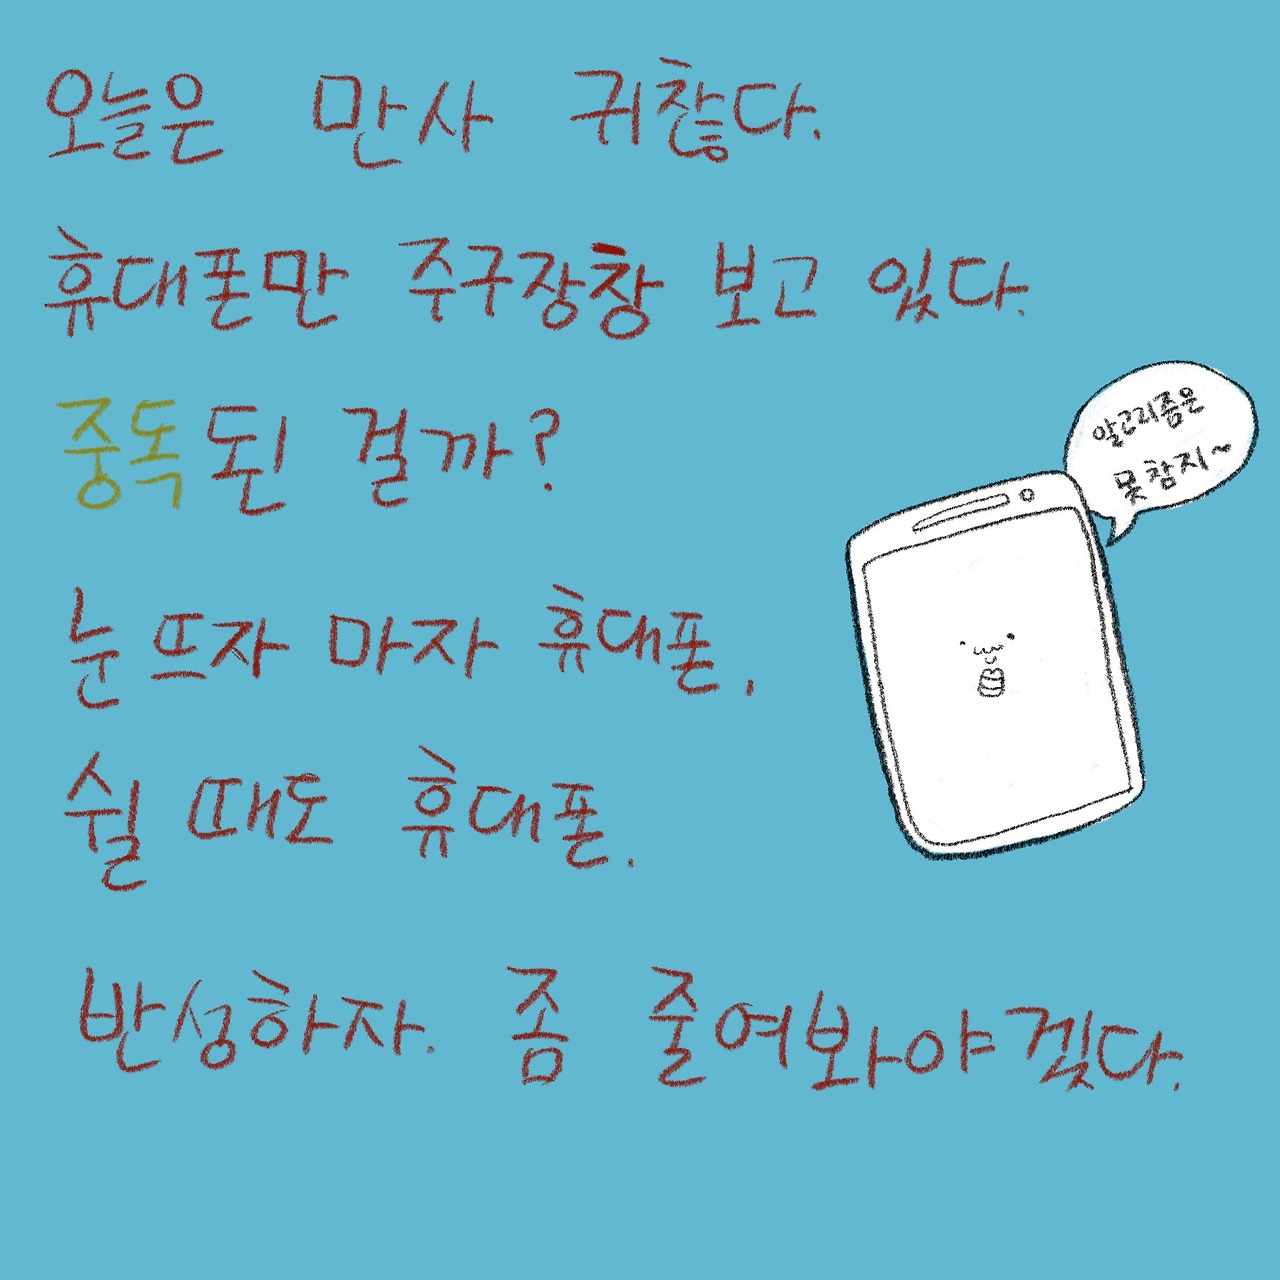 오늘은 만사 귀찮다.
휴대폰만 주구장창 보고 있다.
중독된 걸까?
알고리즘은
못참지~
눈 뜨자 마자 휴대폰.
쉴 때도 휴대폰.
반성하자. 좀 줄여봐야겠다.